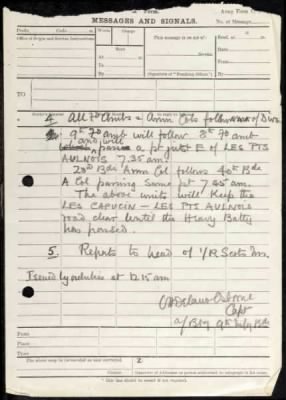 "A" Form.
Army Form
MESSAGES AND SIGNALS.
No. of Message
Prefix Code
Words
Charge
This message is on a/c of:
Office of Origin and Service Instructions
Sent
At
To
By
Service
Date
From
By
(Signature of "Franking Officer")
TO
4. All Fd Ambs & Amm Cols follow of Divn
9th Fd amb will follow 8th Fd amb
and will pass a pt just E of LES PTS
AULNOIS 7.35 am.
Bde Amm Col follows 40th Bde
A Col passing same pt 7.45 am.
The above units will keep the
LES CAPUCIN – LES PTS AULNOIS
road clear until the Heavy Batty
has passed.
5. Reports to head of 1/R Scots Fus.
Issued by orderlies at 12.15 am
Osborne
Capt
a/BM 9th Infy Bde
From
Place
Time
The above may be forwarded as now corrected.
Z
Censor.
Signature of Addressor or person authorised to telegraph in his name.
* This line should be erased if not required.